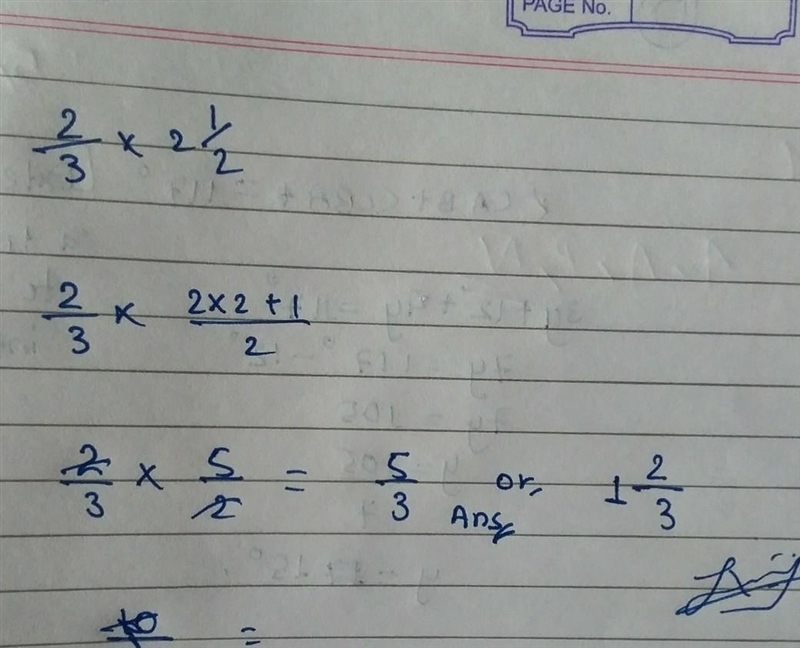 PAGE No.
2/3 × 2 1/2
2/3 × (2×2+1)/2
2/3 × 5/2 = 5/3 or, 1 2/3
Ans
=